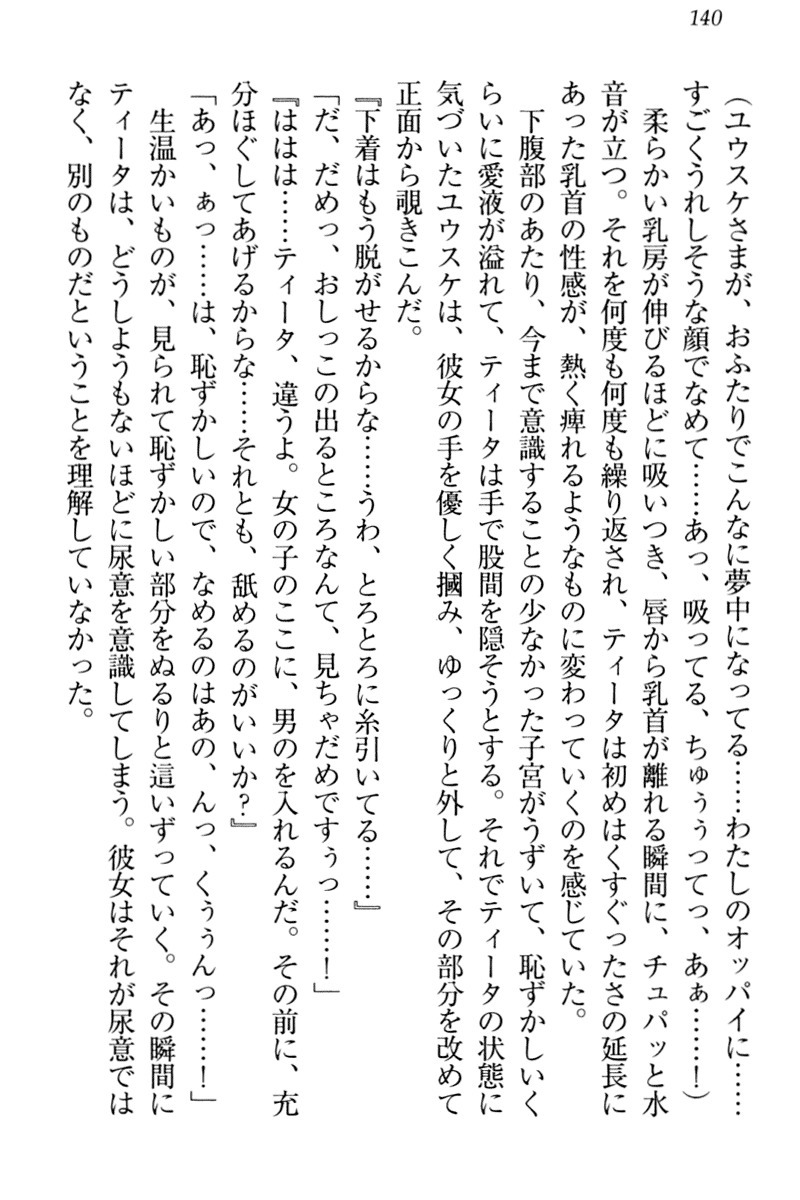 140
（ユウスケさまが、おふたりでこんなに夢中になってる……わたしのオッパイに……
すごくうれしそうな顔でなめて……あっ、吸ってる、ちゅぅぅってっ、あぁ……！）
柔らかい乳房が伸びるほどに吸いつき、唇から乳首が離れる瞬間に、チュパッと水
音が立つ。それを何度も何度も繰り返され、ティータは初めはくすぐったさの延長に
あった乳首の性感が、熱く痺れるようなものに変わっていくのを感じていた。
下腹部のあたり、今まで意識することの少なかった子宮がうずいて、恥ずかしいく
らいに愛液が溢れて、ティータは手で股間を隠そうとする。それでティータの状態に
気づいたユウスケは、彼女の手を優しく摑み、ゆっくりと外して、その部分を改めて
正面から覗きこんだ。
『下着はもう脱がせるからな……うわ、とろとろに糸引いてる……』
「だ、だめっ、おしっこの出るところなんて、見ちゃだめですぅっ……！」
『ははは……ティータ、違うよ。女の子のここに、男のを入れるんだ。その前に、充
分ほぐしてあげるからな……それとも、舐めるのがいいか？』
「あっ、ぁっ……は、恥ずかしいので、なめるのはあの、んっ、くぅぅんっ……！」
生温かいものが、見られて恥ずかしい部分をぬるりと這いずっていく。その瞬間に
ティータは、どうしようもないほどに尿意を意識してしまう。彼女はそれが尿意では
なく、別のものだということを理解していなかった。